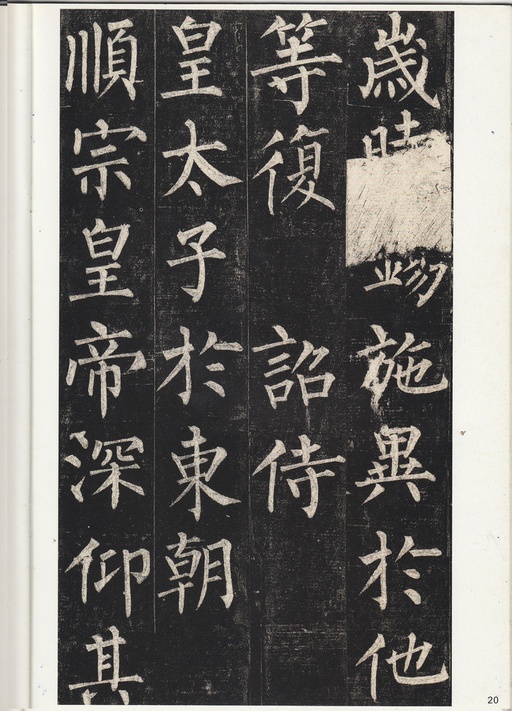 歲時錫施異於他
等復詔侍
皇太子於東朝
順宗皇帝深仰其
20